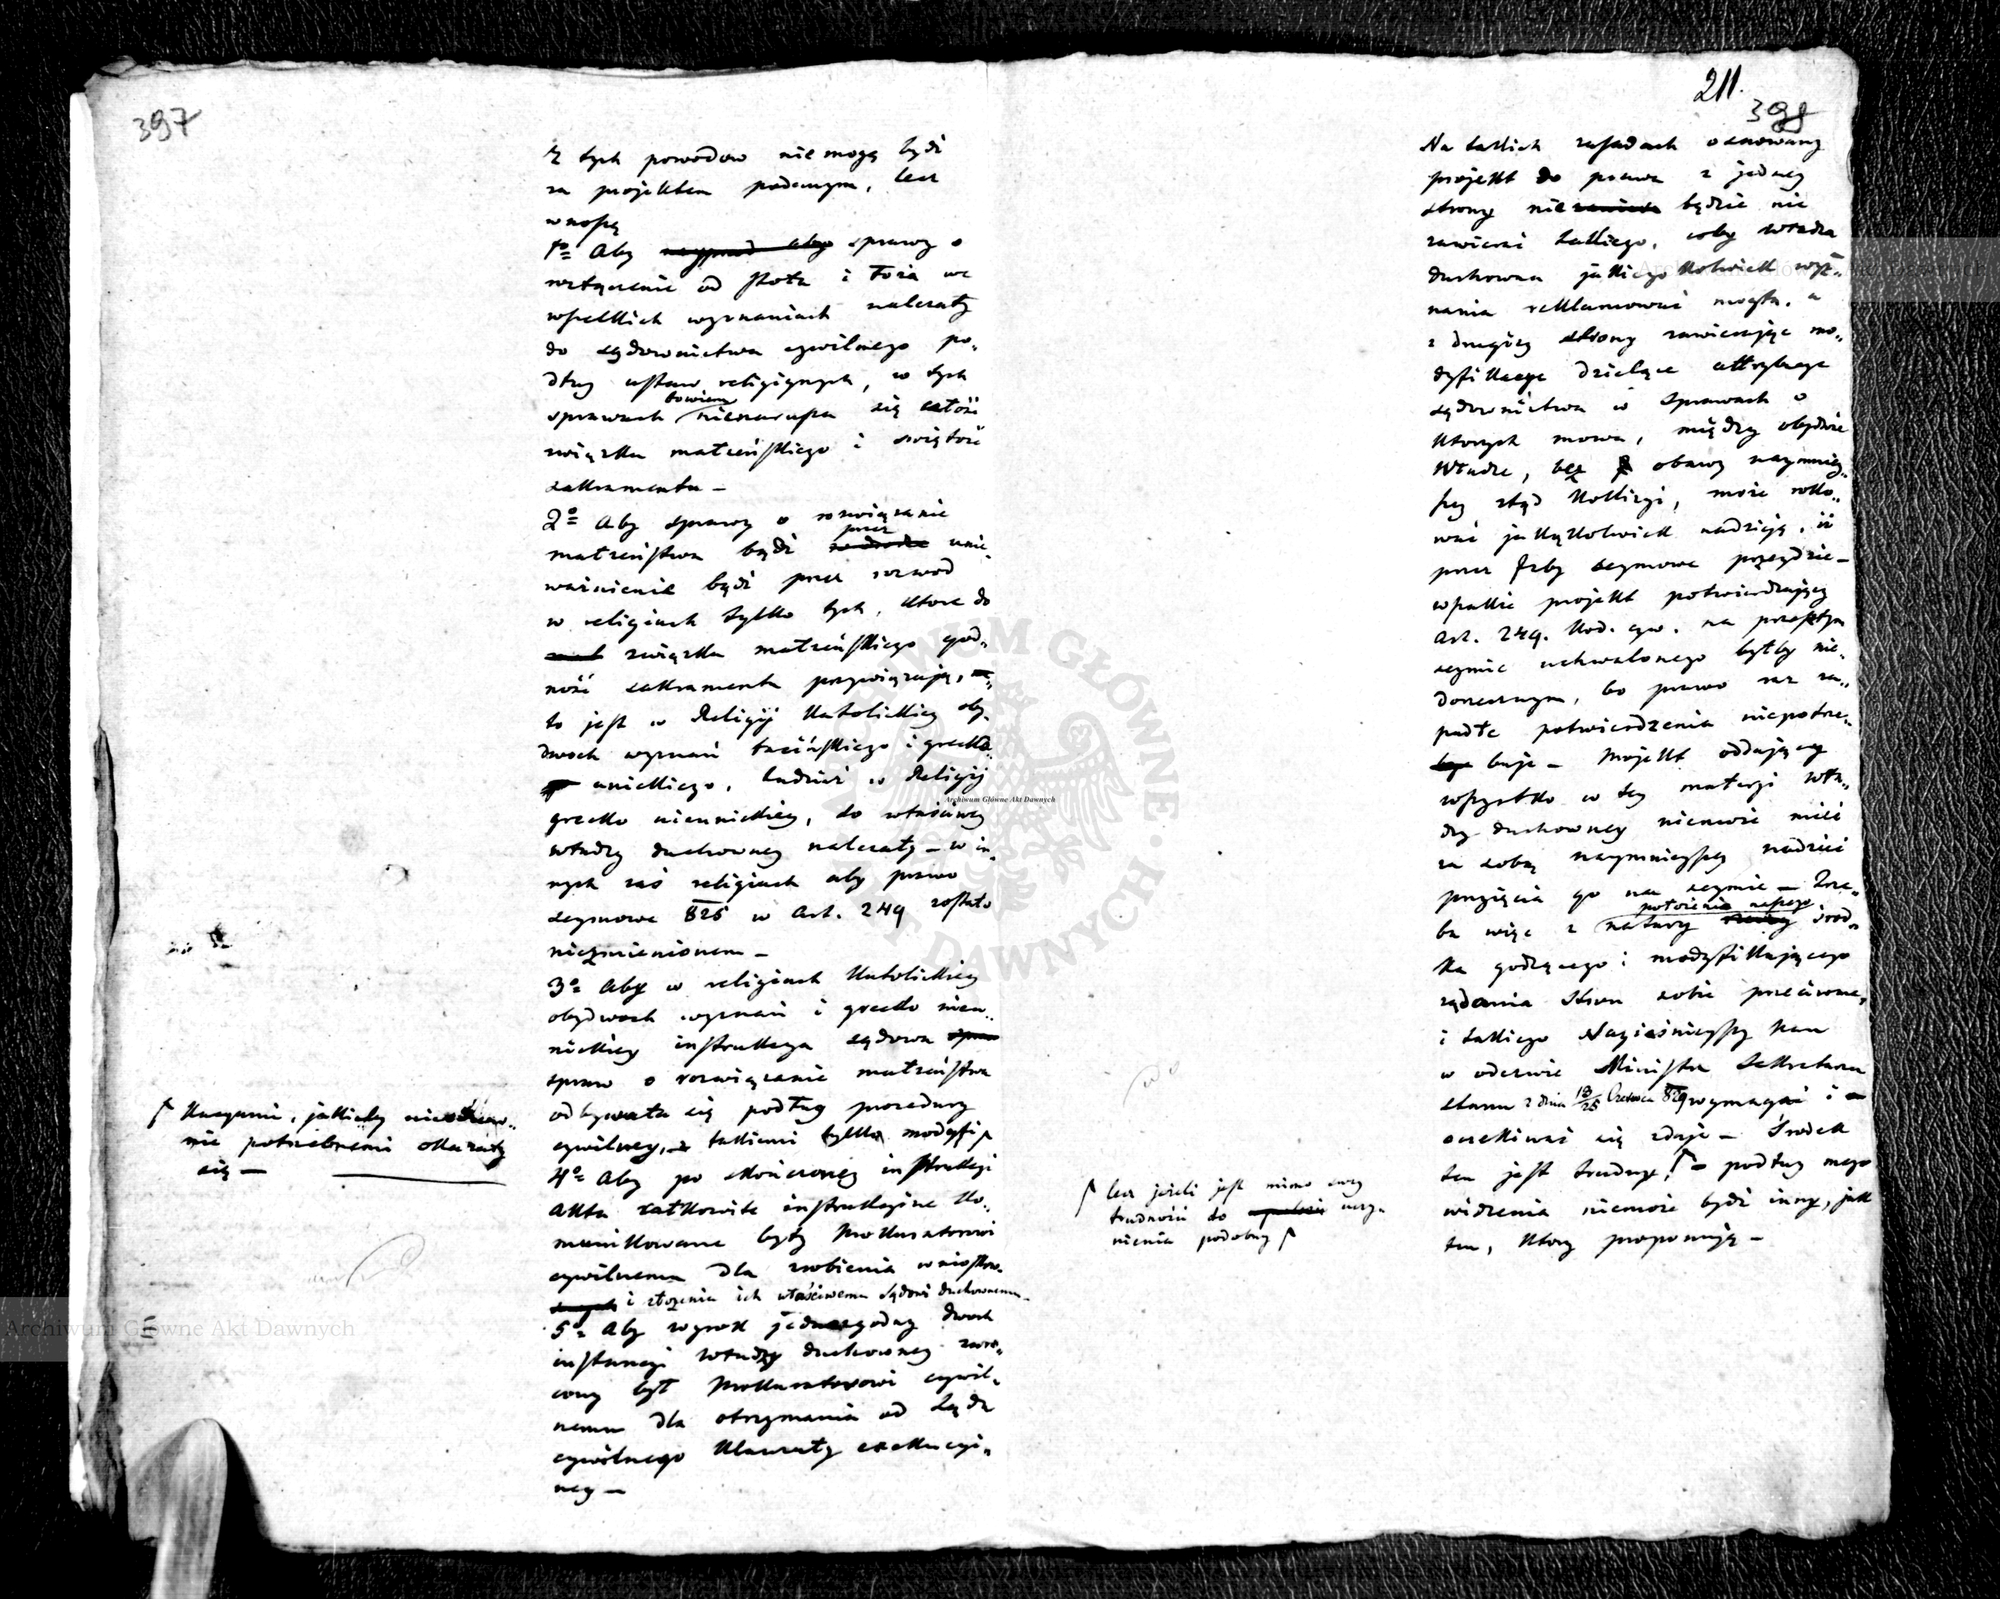 397
Z tych powodow nie mogę bydź
za projektem podanym, lecz
wnoszę
1º Aby sprawy o
rozłączenie od stołu i łoża we
wszelkich wyznaniach należały
do sądownictwa cywilnego po-
dług ustaw religiynych, w tych
sprawach bowiem nienarusza się całość
związku małżeńskiego i świętość
sakramentu –
2º Aby sprawy o rozwiązanie
małżeństwa bądź przez unie-
ważnienie bądź przez rozwod
w religiach tylko tych, które do
związku małżeńskiego god-
ność sakramentu przywiązują,
to jest w Religij Katolickiey oby-
dwoch wyznań łacińskiego i grecko
unickiego, tudzież w Religij
grecko nieunickiey, do właściwey
władzy duchowney należały – w in-
nych zaś religiach aby prawo
seymowe 825 w Art. 249 zostało
niezmienionem –
3º Aby w religiach Katolickiey
obydwoch wyznań i grecko nieu-
nickiey instrukcya sądowa
spraw o rozwiązanie małżeństwa
odbywała się podług procedury
cywilney, z takiemi tylko modyfi
Kacyami, jakieby
potrzebnemi okazały
się –
4º Aby po skończoney instrukcyi
Akta całkowite instrukcyine ko-
munikowane były Prokuratorowi
cywilnemu dla zrobienia wnioskow
i złożenia ich właściwemu Sądowi duchownemu –
5º Aby wyrok jednozgodny dwoch
instancyi władzy duchowney zwro-
cony był Prokuratorowi cywil-
nemu dla otrzymania od Sądu
cywilnego klauzuly exekucyi-
ney –
211.
398
Na takich zasadach osnowany
projekt do prawa z jedney
strony nie będzie nic
zawierać takiego, coby władza
duchowna jakiegokolwiek wyz-
nania reklamować mogła, a
z drugiey strony zawierając mo-
dyfikacye dzielące attrybucye
sądownictwa w sprawach o
ktorych mowa, między obydwie
Władze, bez obawy naymniey-
szey ztąd kollizyi, może roko-
wać jakążkolwiek nadzieją, iż
przez Izby seymowe przeydzie –
wszakże projekt potwierdzający
Art. 249. Kod. cyw. na przeszłym
seymie uchwalonego byłby nie-
dorzecznym, bo prawo raz za-
padłe potwierdzenia niepotrze-
buje – Projekt oddający
wszystko w tey materyi wła-
dzy duchowney niemoże mieć
za sobą naymnieyszey nadziei
przyięcia go na seymie – Trze-
ba więc z natury położenia naszego środ-
ka godzącego i modyfikującego
żądania stron sobie przeciwne,
i takiego Nayjaśnieyszy Pan
w odezwie Ministra Sekretarza
stanu z dnia 13/25 Czerwca 829 wymagać i
oczekiwać się zdaje – Środek
ten jest trudny,
lecz jeżeli jest mimo swey
trudności do uczy-
nienia podobny
– podług mego
widzenia niemoże bydź inny, jak
ten, ktory proponuję –
Archiwum Główne Akt Dawnych